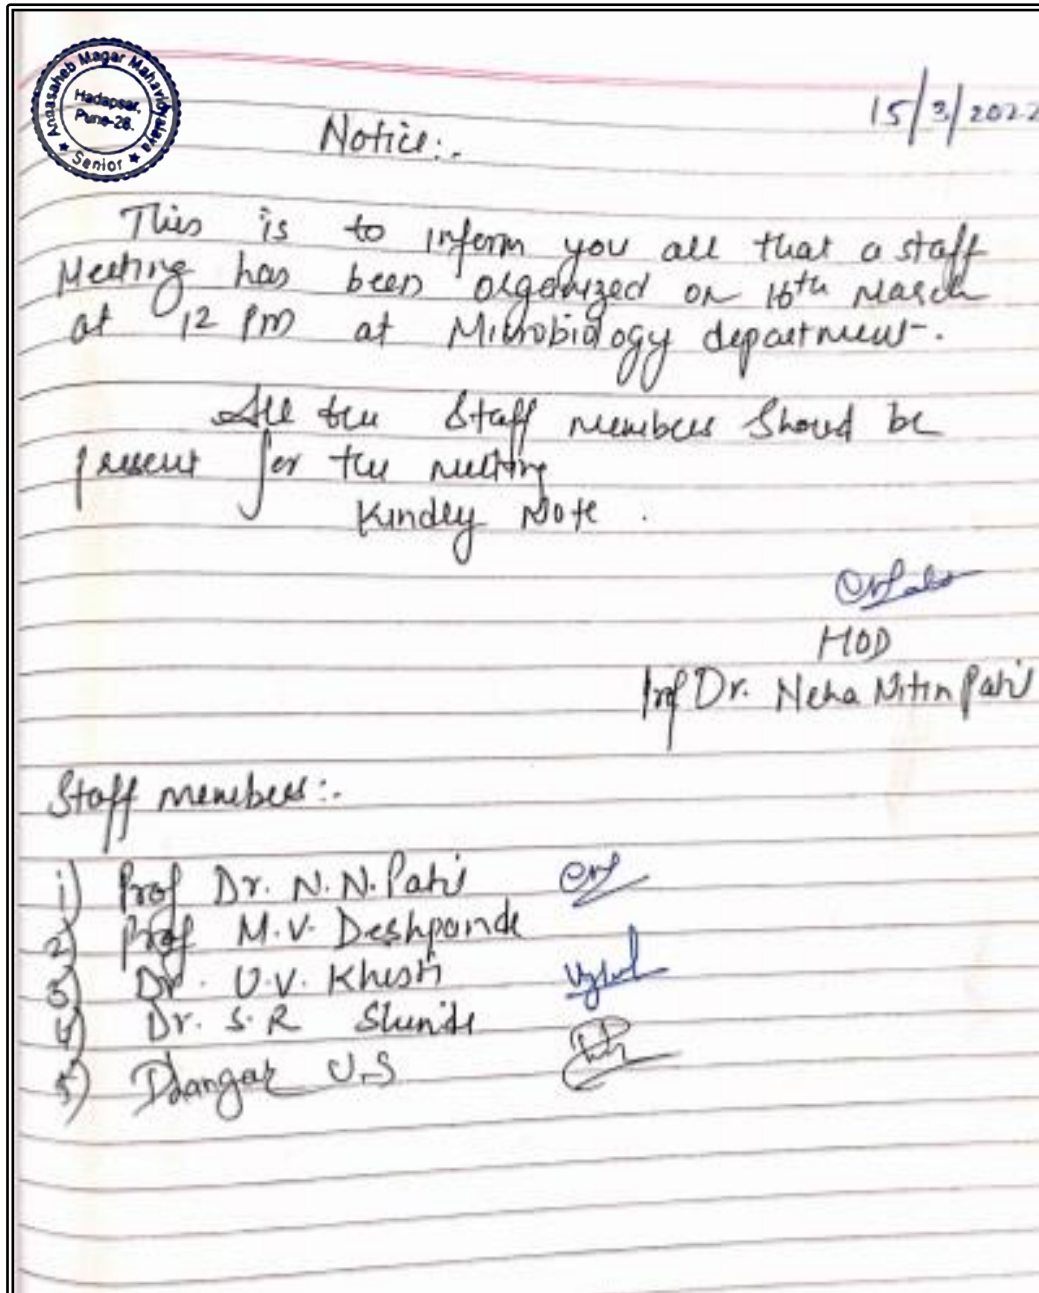 Annasaheb Magar Mahavidyalaya
Hadapsar,
Pune-28.
★ Senior ★
15/3/2022
Notice:-
This is to inform you all that a staff
Meeting has been organized on 16th March
at 12 PM at Microbiology department.
All the Staff members Shoud be
present for the meeting
Kindly Note .
HOD
Prof Dr. Neha Nitin Patil
Staff members:-
1) Prof Dr. N. N. Patil
2) Prof M.V. Deshpande
3) Dr. U.V. Khisti
4) Dr. S.R Shinde
5) Dhangar U.S